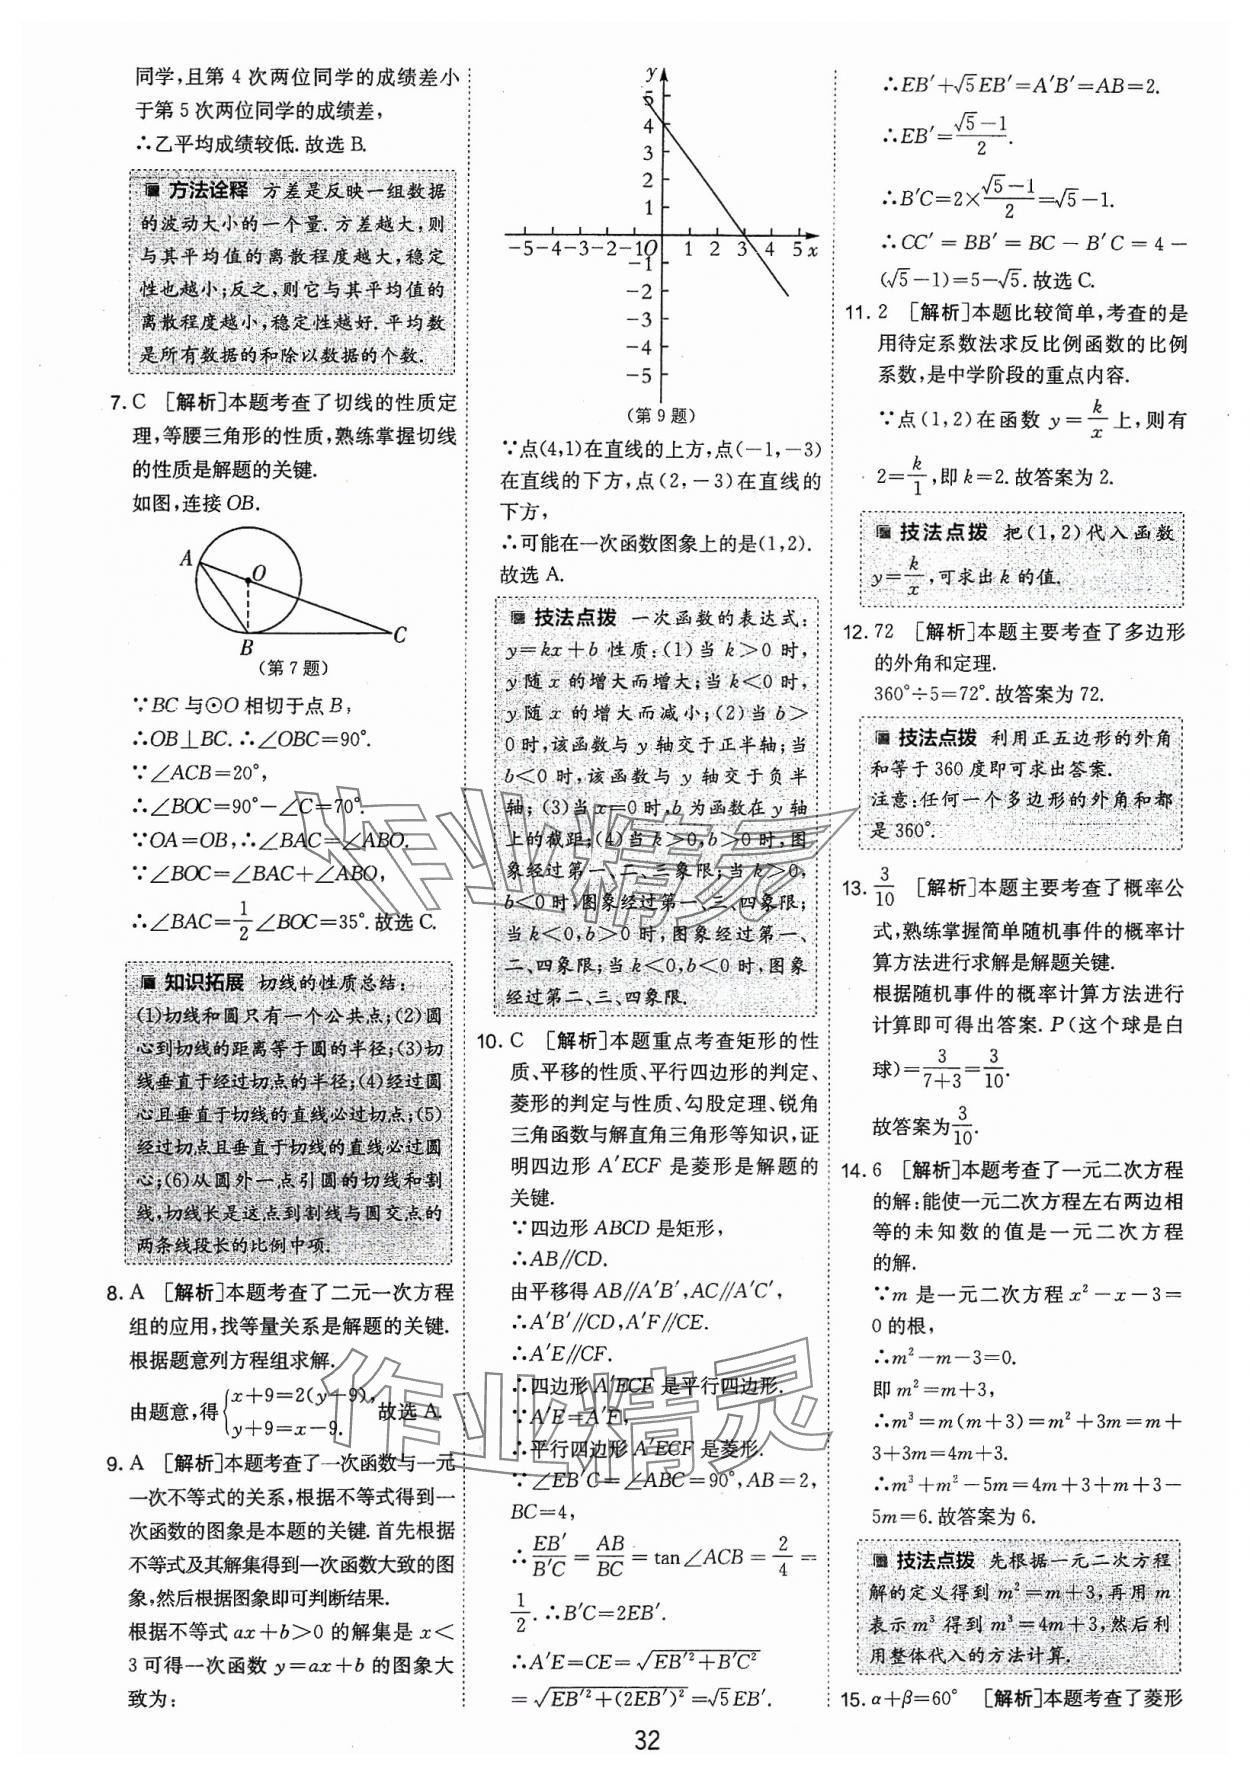 同学,且第 4 次两位同学的成绩差小
于第 5 次两位同学的成绩差,
∴乙平均成绩较低. 故选 B.
方法诠释 方差是反映一组数据
的波动大小的一个量. 方差越大,则
与其平均值的离散程度越大,稳定
性也越小;反之,则它与其平均值的
离散程度越小,稳定性越好. 平均数
是所有数据的和除以数据的个数.
7. C [解析]本题考查了切线的性质定
理,等腰三角形的性质,熟练掌握切线
的性质是解题的关键.
如图,连接 OB.
A
O
B
C
(第 7 题)
∵BC 与⊙O 相切于点 B,
∴OB⊥BC. ∴∠OBC=90°.
∵∠ACB=20°,
∴∠BOC=90°-∠C=70°.
∵OA=OB,∴∠BAC=∠ABO.
∵∠BOC=∠BAC+∠ABO,
∴∠BAC=1/2∠BOC=35°. 故选 C.
知识拓展 切线的性质总结:
(1)切线和圆只有一个公共点;(2)圆
心到切线的距离等于圆的半径;(3)切
线垂直于经过切点的半径;(4)经过圆
心且垂直于切线的直线必过切点;(5)
经过切点且垂直于切线的直线必过圆
心;(6)从圆外一点引圆的切线和割
线,切线长是这点到割线与圆交点的
两条线段长的比例中项.
8. A [解析]本题考查了二元一次方程
组的应用,找等量关系是解题的关键.
根据题意列方程组求解.
由题意,得{x+9=2(y+9), 故选 A.
y+9=x-9.
9. A [解析]本题考查了一次函数与一元
一次不等式的关系,根据不等式得到一
次函数的图象是本题的关键. 首先根据
不等式及其解集得到一次函数大致的图
象,然后根据图象即可判断结果.
根据不等式 ax+b>0 的解集是 x<
3 可得一次函数 y=ax+b 的图象大
致为:
y
5
4
3
2
1
-5-4-3-2-1O 1 2 3 4 5 x
-1
-2
-3
-4
-5
(第 9 题)
∵点(4,1)在直线的上方,点(-1,-3)
在直线的下方,点(2,-3)在直线的
下方,
∴可能在一次函数图象上的是(1,2).
故选 A.
技法点拨 一次函数的表达式:
y=kx+b 性质:(1)当 k>0 时,
y 随 x 的增大而增大;当 k<0 时,
y 随 x 的增大而减小;(2)当 b>
0 时,该函数与 y 轴交于正半轴;当
b<0 时,该函数与 y 轴交于负半
轴;(3)当 x=0 时,b 为函数在 y 轴
上的截距;(4)当 k>0,b>0 时,图
象经过第一、二、三象限;当 k>0,
b<0 时,图象经过第一、三、四象限;
当 k<0,b>0 时,图象经过第一、
二、四象限;当 k<0,b<0 时,图象
经过第二、三、四象限.
10. C [解析]本题重点考查矩形的性
质、平移的性质、平行四边形的判定、
菱形的判定与性质、勾股定理、锐角
三角函数与解直角三角形等知识,证
明四边形 A′ECF 是菱形是解题的
关键.
∵四边形 ABCD 是矩形,
∴AB//CD.
由平移得 AB//A′B′,AC//A′C′,
∴A′B′//CD,A′F//CE.
∴A′E//CF.
∴四边形 A′ECF 是平行四边形.
∵A′E=A′F,
∴平行四边形 A′ECF 是菱形.
∵∠EB′C=∠ABC=90°,AB=2,
BC=4,
∴EB′/B′C=AB/BC=tan∠ACB=2/4=
1/2. ∴B′C=2EB′.
∴A′E=CE=√(EB′²+B′C²)
=√(EB′²+(2EB′)²)=√5EB′.
∴EB′+√5EB′=A′B′=AB=2.
∴EB′=(√5-1)/2.
∴B′C=2×(√5-1)/2=√5-1.
∴CC′=BB′=BC-B′C=4-
(√5-1)=5-√5. 故选 C.
11. 2 [解析]本题比较简单,考查的是
用待定系数法求反比例函数的比例
系数,是中学阶段的重点内容.
∵点(1,2)在函数 y=k/x上,则有
2=k/1,即 k=2. 故答案为 2.
技法点拨 把(1,2)代入函数
y=k/x,可求出 k 的值.
12. 72 [解析]本题主要考查了多边形
的外角和定理.
360°÷5=72°. 故答案为 72.
技法点拨 利用正五边形的外角
和等于 360 度即可求出答案.
注意:任何一个多边形的外角和都
是 360°.
13. 3/10 [解析]本题主要考查了概率公
式,熟练掌握简单随机事件的概率计
算方法进行求解是解题关键.
根据随机事件的概率计算方法进行
计算即可得出答案. P(这个球是白
球)=3/(7+3)=3/10.
故答案为3/10.
14. 6 [解析]本题考查了一元二次方程
的解:能使一元二次方程左右两边相
等的未知数的值是一元二次方程
的解.
∵m 是一元二次方程 x²-x-3=
0 的根,
∴m²-m-3=0.
即 m²=m+3,
∴m³=m(m+3)=m²+3m=m+
3+3m=4m+3.
∴m³+m²-5m=4m+3+m+3-
5m=6. 故答案为 6.
技法点拨 先根据一元二次方程
解的定义得到 m²=m+3,再用 m
表示 m³ 得到 m³=4m+3,然后利
用整体代入的方法计算.
15. α+β=60° [解析]本题考查了菱形
32
作业精灵
作业精灵